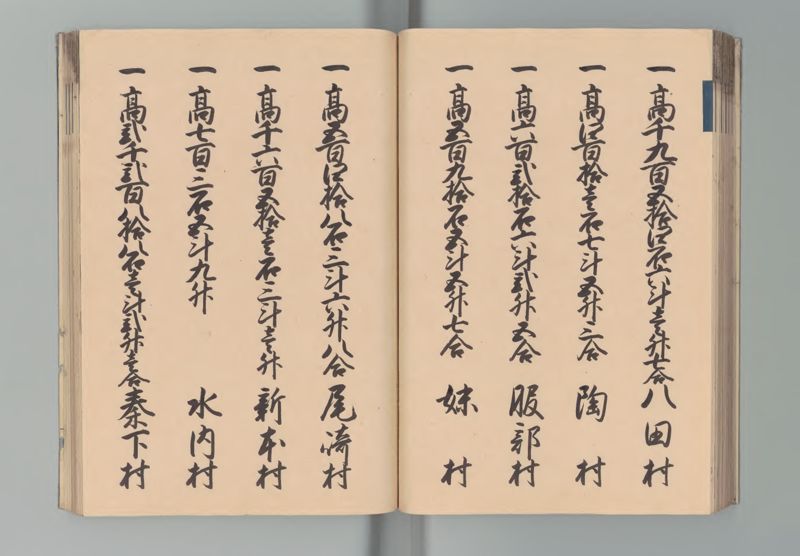 一高千九百五拾四石六斗壱升七合八田村
一高四百拾壱石七斗五升三合 陶村
一高六百弐拾石六斗弐升五合 服部村
一高五百九拾石五斗五升七合 妹村
一高五百四拾八石三斗六升八合 尾崎村
一高千六百五拾壱石三斗壱升 新本村
一高七百三石五斗九升 水内村
一高弐千弐百八拾八石壱斗弐升壱合 秦下村